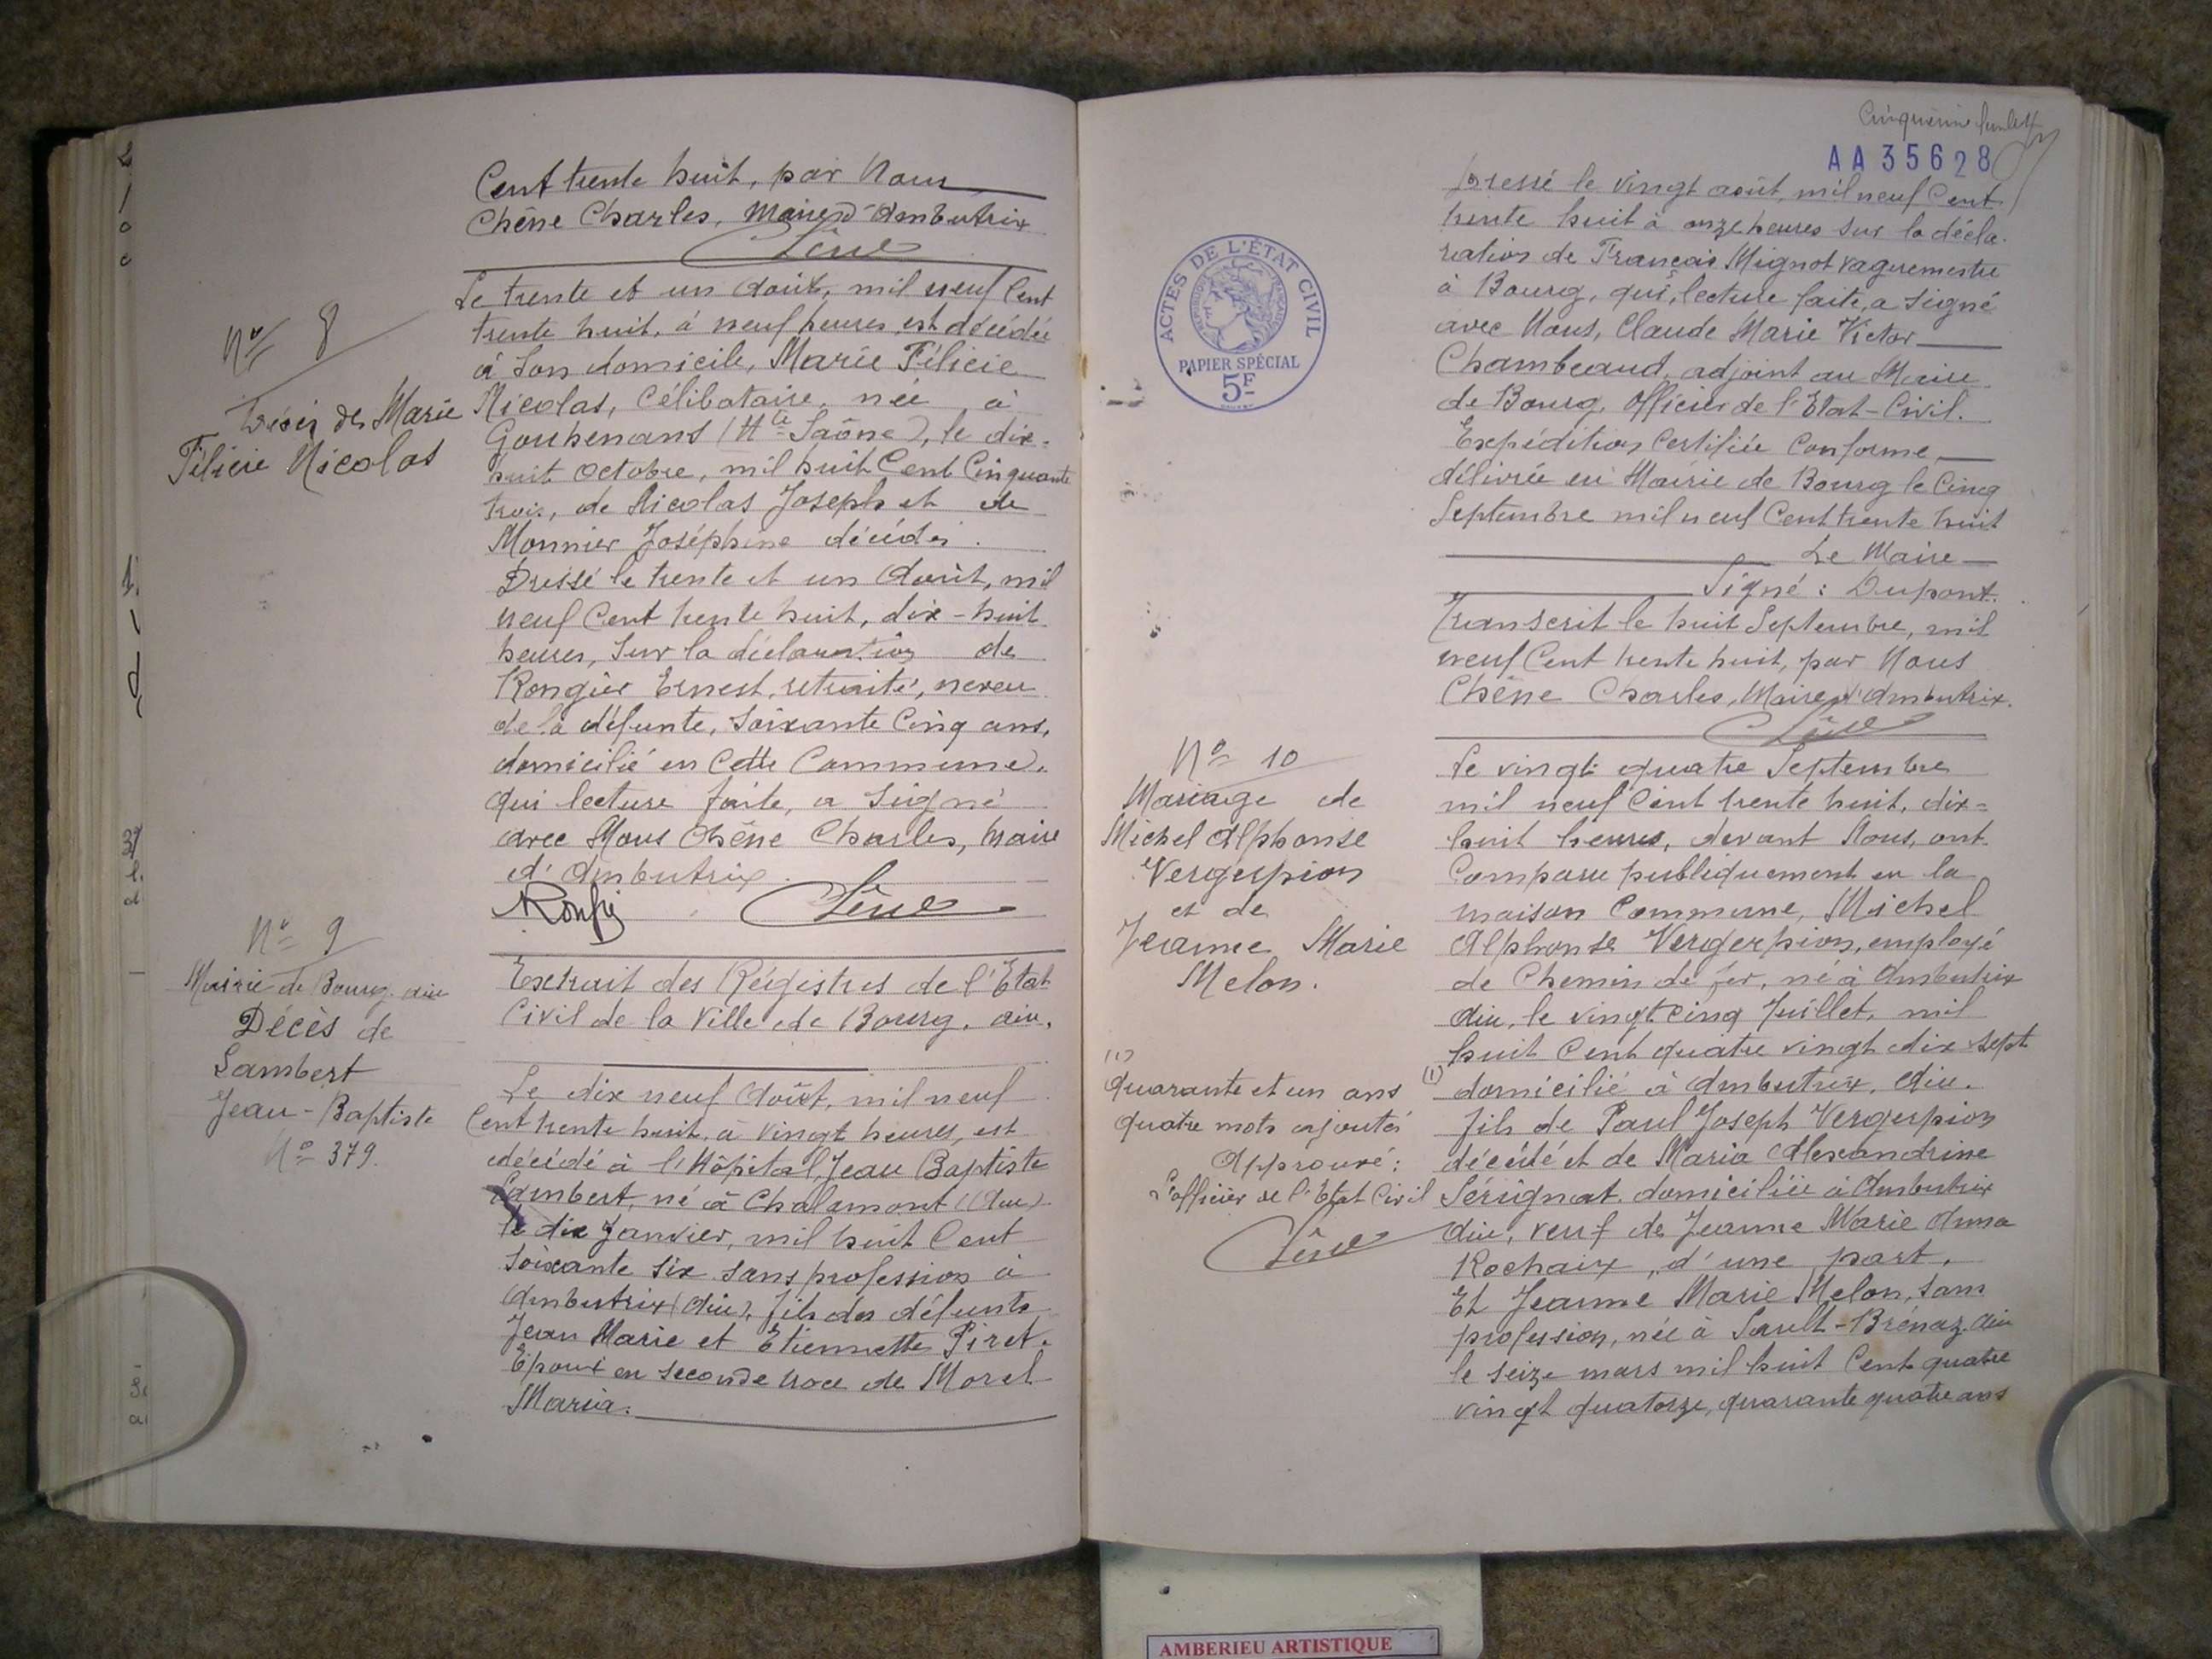 Cent trente huit, par Nous
Chêne Charles, Maire d'Ambutrix
Chêne
Nº 8
Décès de Marie
Félicie Nicolas
Le trente et un Août, mil neuf Cent
trente huit, à neuf heures est décédée
à son domicile, Marie Félicie
Nicolas, Célibataire, née à
Gouhenans (Hte Saône), le dix-
huit octobre, mil huit Cent Cinquante
trois, de Nicolas Joseph et de
Monnier Joséphine décédés.
Dressé le trente et un Août, mil
neuf Cent trente huit, dix-huit
heures, Sur la déclaration de
Rongier Ernest, retraité, neveu
de la défunte, soixante Cinq ans,
domicilié en Cette Commune,
qui lecture faite, a signé
avec Nous Chêne Charles, Maire
d'Ambutrix.
Chêne
Nº 9
Mairie de Bourg. Ain
Décès de
Lambert
Jean-Baptiste
Nº 379.
Extrait des Régistres de l'État
Civil de la Ville de Bourg. Ain.
Le dix neuf Août, mil neuf
Cent trente huit, à vingt heures, est
décédé à l'Hôpital, Jean Baptiste
Lambert, né à Chalamont (Ain)
le dix Janvier, mil huit Cent
soixante six sans profession à
Ambutrix (Ain), fils des défunts
Jean Marie et Etiennette Piret.
Epoux en seconde noce de Morel
Maria.
AA 35628
ACTES DE L'ÉTAT CIVIL
PAPIER SPÉCIAL
5F
Dressé le vingt août, mil neuf Cent
trente huit à onze heures sur la décla-
ration de François Mignot vaguemestre
à Bourg, qui, lecture faite, a signé
avec Nous, Claude Marie Victor
Chambeaud, adjoint au Maire
de Bourg, Officier de l'Etat-Civil.
Expédition Certifiée Conforme,
délivrée en Mairie de Bourg le Cinq
Septembre mil neuf Cent trente huit
Le Maire
Signé : Dupont.
Transcrit le huit Septembre, mil
neuf Cent trente huit, par Nous
Chêne Charles, Maire d'Ambutrix.
Chêne
Nº 10
Mariage de
Michel Alphonse
Vergerpion
et de
Jeanne Marie
Melon.
Le vingt quatre Septembre
mil neuf Cent trente huit, dix-
huit heures, devant Nous, ont
Comparu publiquement en la
maison Commune, Michel
Alphonse Vergerpion, employé
de Chemin de fer, né à Ambutrix
Ain, le vingt cinq Juillet, mil
huit Cent quatre vingt dix sept
(1) domicilié à Ambutrix, Ain.
fils de Paul Joseph Vergerpion
décédé et de Maria Alexandrine
Sérignat, domiciliée à Ambutrix
Ain, veuf de Jeanne Marie Anna
Rochaix, d'une part,
Et Jeanne Marie Melon, sans
profession, née à Sault-Brénaz. Ain
le seize mars mil huit Cent quatre
vingt quatorze, quarante quatre ans
(1)
Quarante et un ans
quatre mots ajoutés
Approuvé:
L'officier de l'Etat Civil
Chêne
AMBERIEU ARTISTIQUE